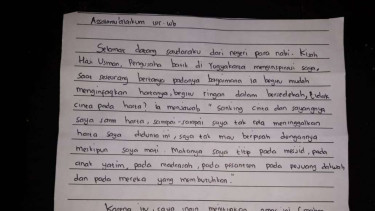 Assamu'alaikum wr. wb
Selamat datang saudaraku dari negeri para nabi. Kisah
Haji Usman, Pengusaha batik di Yogyakarta menginspirasi saya,
saat seseorang bertanya padanya bagaimana ia begitu mudah
menginfaqkan hartanya, begitu ringan dalam bersedekah, tidak
cinta pada harta? Ia menjawab " Saking cinta dan sayangnya
saya sama harta, sampai-sampai saya tak rela meninggalkan
harta saya didunia ini, saya tak mau berpisah dengannya
meskipun saya mati. Makanya saya titip pada masjid, pada
anak yatim, pada madrasah, pada pesantren pada pejuang dakwah
dan pada mereka yang membutuhkan. "
Karena itu, saya ingin